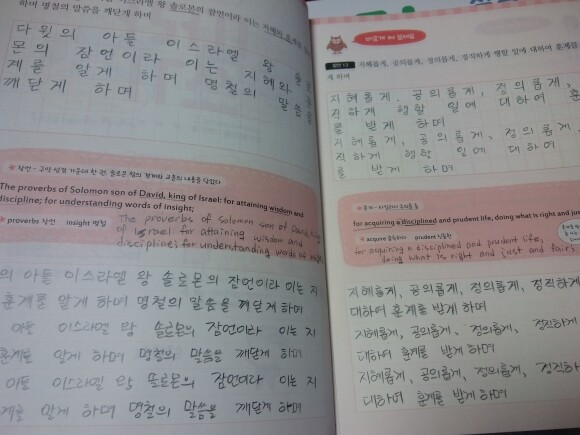 하며 명철의 말씀을 깨닫게 하며
다윗의 아들 이스라엘 왕 솔
몬의 잠언이라 이는 지혜와
계를 알게 하며 명철의 말씀을
깨닫게 하며
The proverbs of Solomon son of David, king of Israel: for attaining wisdom and
discipline; for understanding words of insight;
proverbs 잠언 insight 명철
The proverbs of solomon son of David, king
of Israel for attaining wisdom and
discipline; for understanding words of insight
의 아들 이스라엘 왕 솔로몬의 잠언이라 이는 지
훈계를 알게 하며 명철의 말씀을 깨닫게 하며
아들 이스라엘 왕 솔로몬의 잠언이라 이는 지
훈계를 알게 하며 명철의 말씀을 깨닫게 하며
아들 이스라엘 왕 솔로몬의 잠언이라 이는 지
계를 알게 하며 명철의 말씀을 깨닫게 하며
바르게 써 보세요
잠언 1:3 지혜롭게, 공의롭게, 정의롭게, 정직하게 행할 일에 대하여 훈계를
게 하며
지혜롭게, 공의롭게, 정의롭게,
직하게 행할 일에 대하여 훈
를 받게 하며
지혜롭게, 공의롭게, 정의롭게,
직하게 행할 일에 대하여
를 받게 하며
for acquiring a disciplined and prudent life, doing what is right and just
acquire prudent
for aquiring a disciplined and prudent life,
doing what is right and just and fair;
지혜롭게, 공의롭게, 정의롭게, 정직하게
대하여 훈계를 받게 하며
지혜롭게, 공의롭게, 정의롭게, 정직하게
대하여 훈계를 받게 하며
지혜롭게, 공의롭게, 정의롭게, 정직하
대하여 훈계를 받게 하며